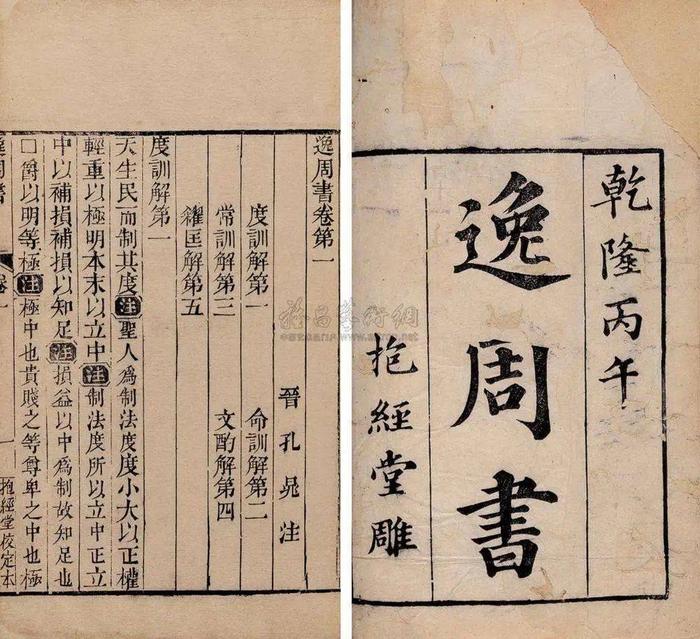 乾隆丙午
逸周書
抱經堂雕
逸周書卷第一
晉孔晁注
度訓解第一 命訓解第二
常訓解第三 文酌解第四
糴匡解第五
度訓解第一
天生民而制其度注聖人爲制法度度小大以正權
輕重以極明本末以立中注制法度所以立中正立
中以補損補損以知足注損益以中爲制故知足也
□爵以明等極注極中也貴賤之等尊卑之中也極
逸周書 卷一
抱經堂校定本